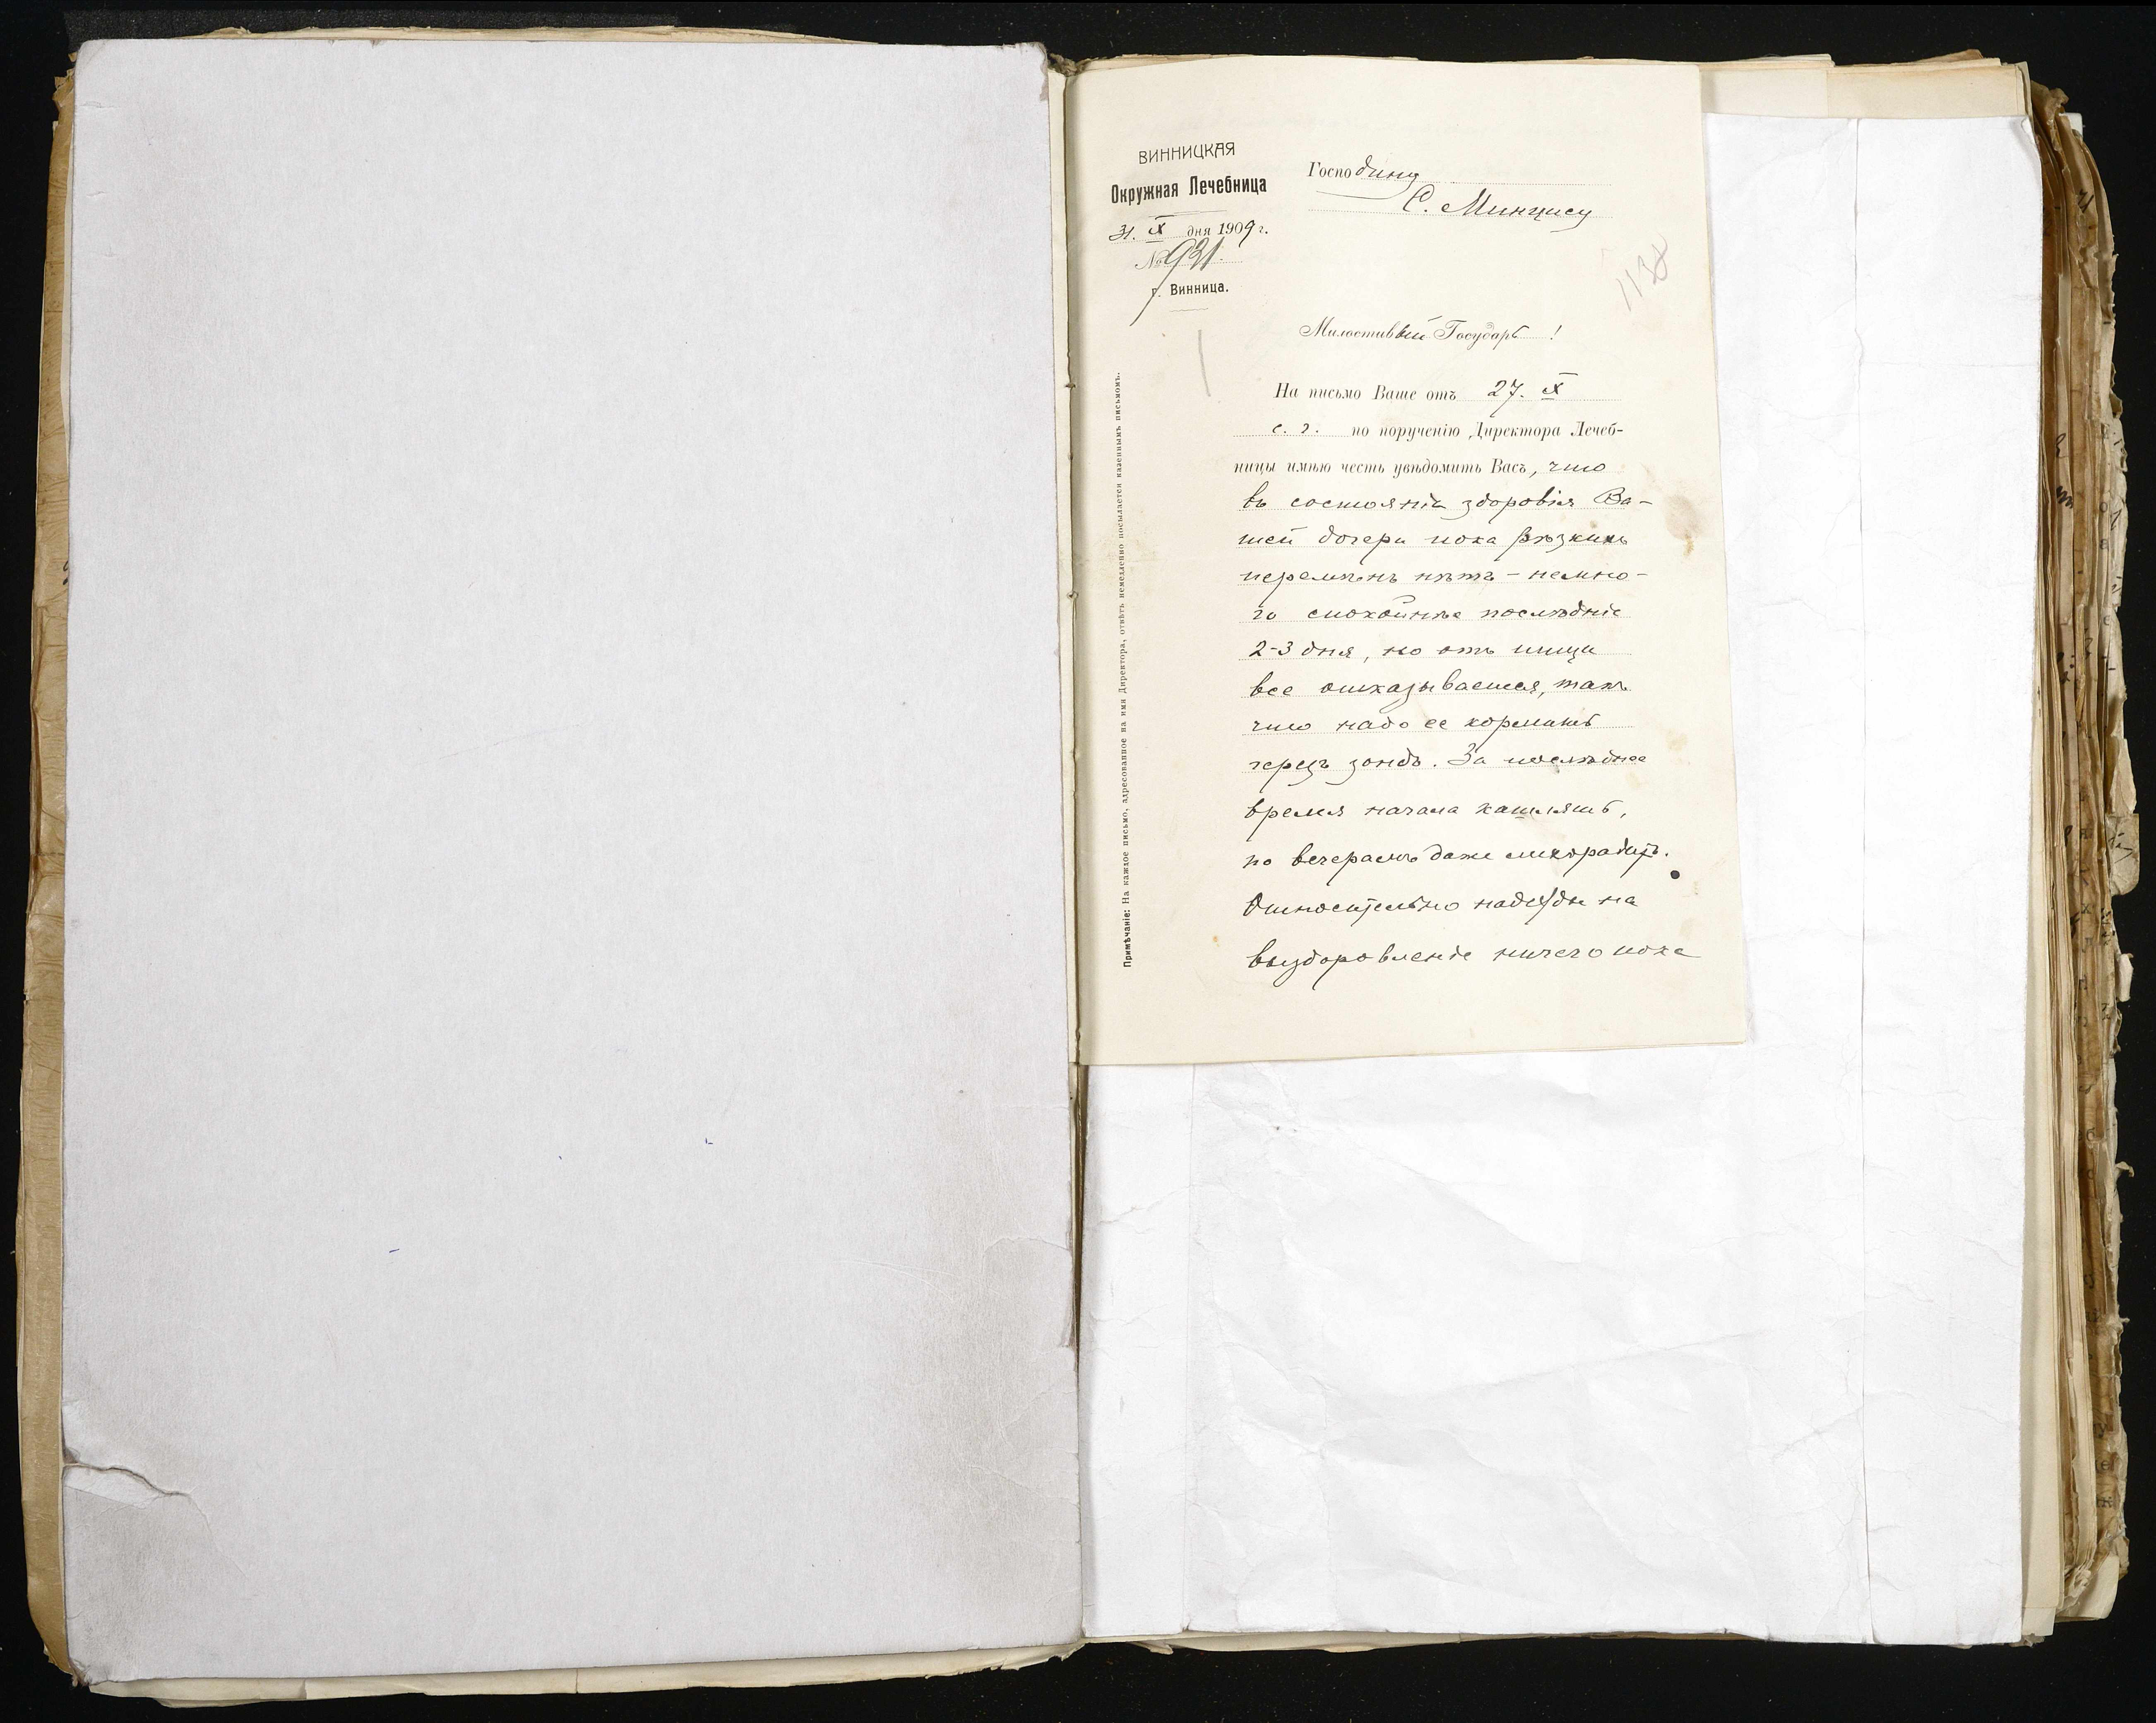 ВИННИЦКАЯ
Окружная Лечебница
31. X дня 1909 г.
№ 931.
г. Винница.
Господину
С. Минцису
1138
Милостивый Государь!
На письмо Ваше отъ 27. X
с. г. по порученію Директора Лечеб-
ницы имѣю честь увѣдомить Васъ, что
въ состояніи здоровія Ва-
шей дочери пока рѣзкихъ
перемѣнъ нѣтъ - немно-
го спокойнѣе послѣдніе
2-3 дня, но отъ пищи
все отказывается, такъ
что надо ее кормить
черезъ зондъ. За послѣднее
время начала кашлять,
по вечерамъ даже лихорадитъ.
Относительно надежды на
выздоровленіе ничего пока
Примѣчаніе: На каждое письмо, адресованное на имя Директора, отвѣтъ немедленно посылается казеннымъ письмомъ.